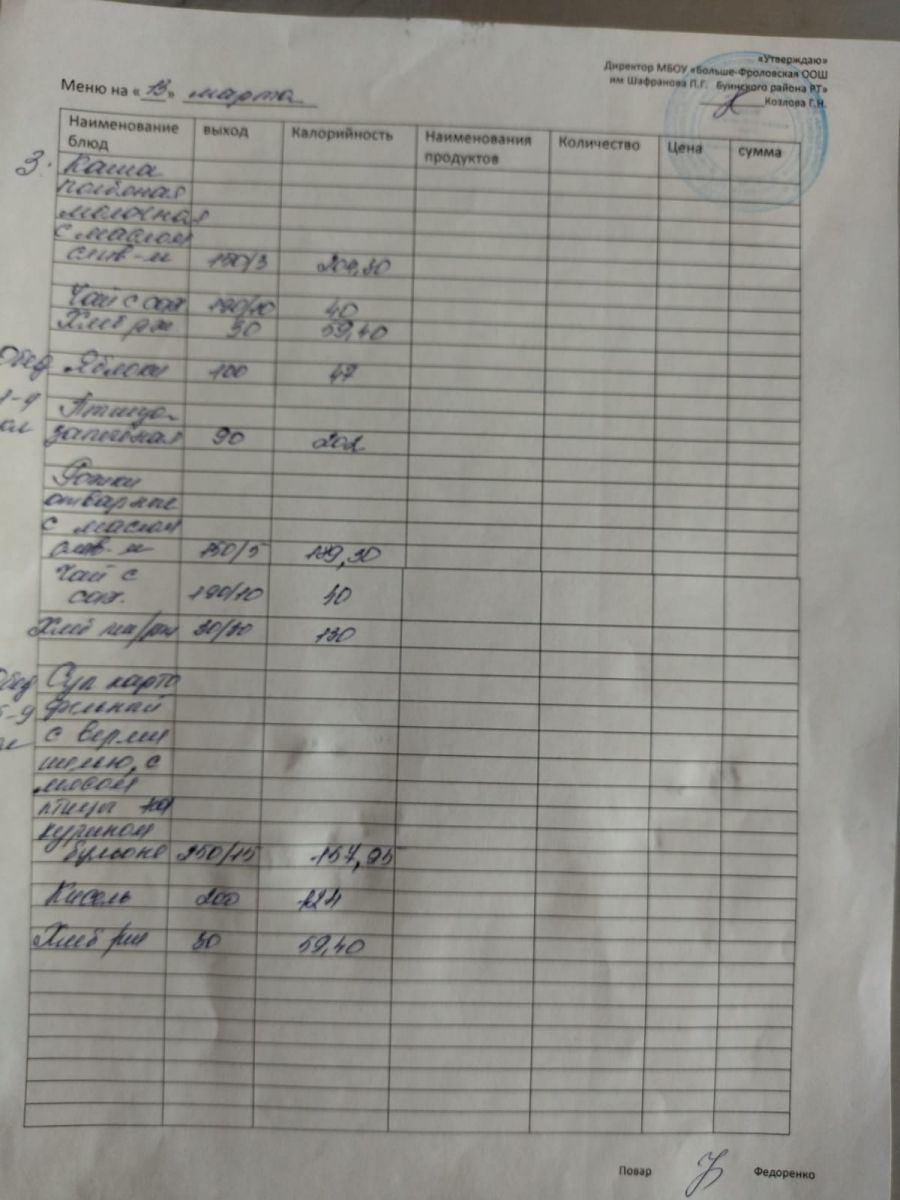 «Утверждаю»
Директор МБОУ «Больше-Фроловская ООШ
им Шафранова П.Г. Буинского района РТ»
Козлова Г.Н.
Меню на «13» марта
Наименование блюд выход Калорийность Наименования продуктов Количество Цена сумма
3. Каша
полбеная
молочная
с маслом
слив-м 150/3 204,30
Чай с сах 190/10 40
Хлеб рж 30 59,40
Обед Яблоки 100 47
1-4 Птица
кл запеченая 90 202
Рожки
отварные
с маслом
слив-м 150/5 189,30
Чай с
сах. 190/10 40
Хлеб пш/рж 30/30 130
Обед Суп карто
5-9 фельный
кл с верми
шелью, с
мясом
птицы на
курином
бульоне 250/15 157,95
Кисель 200 124
Хлеб рж 30 59,40
Повар Федоренко